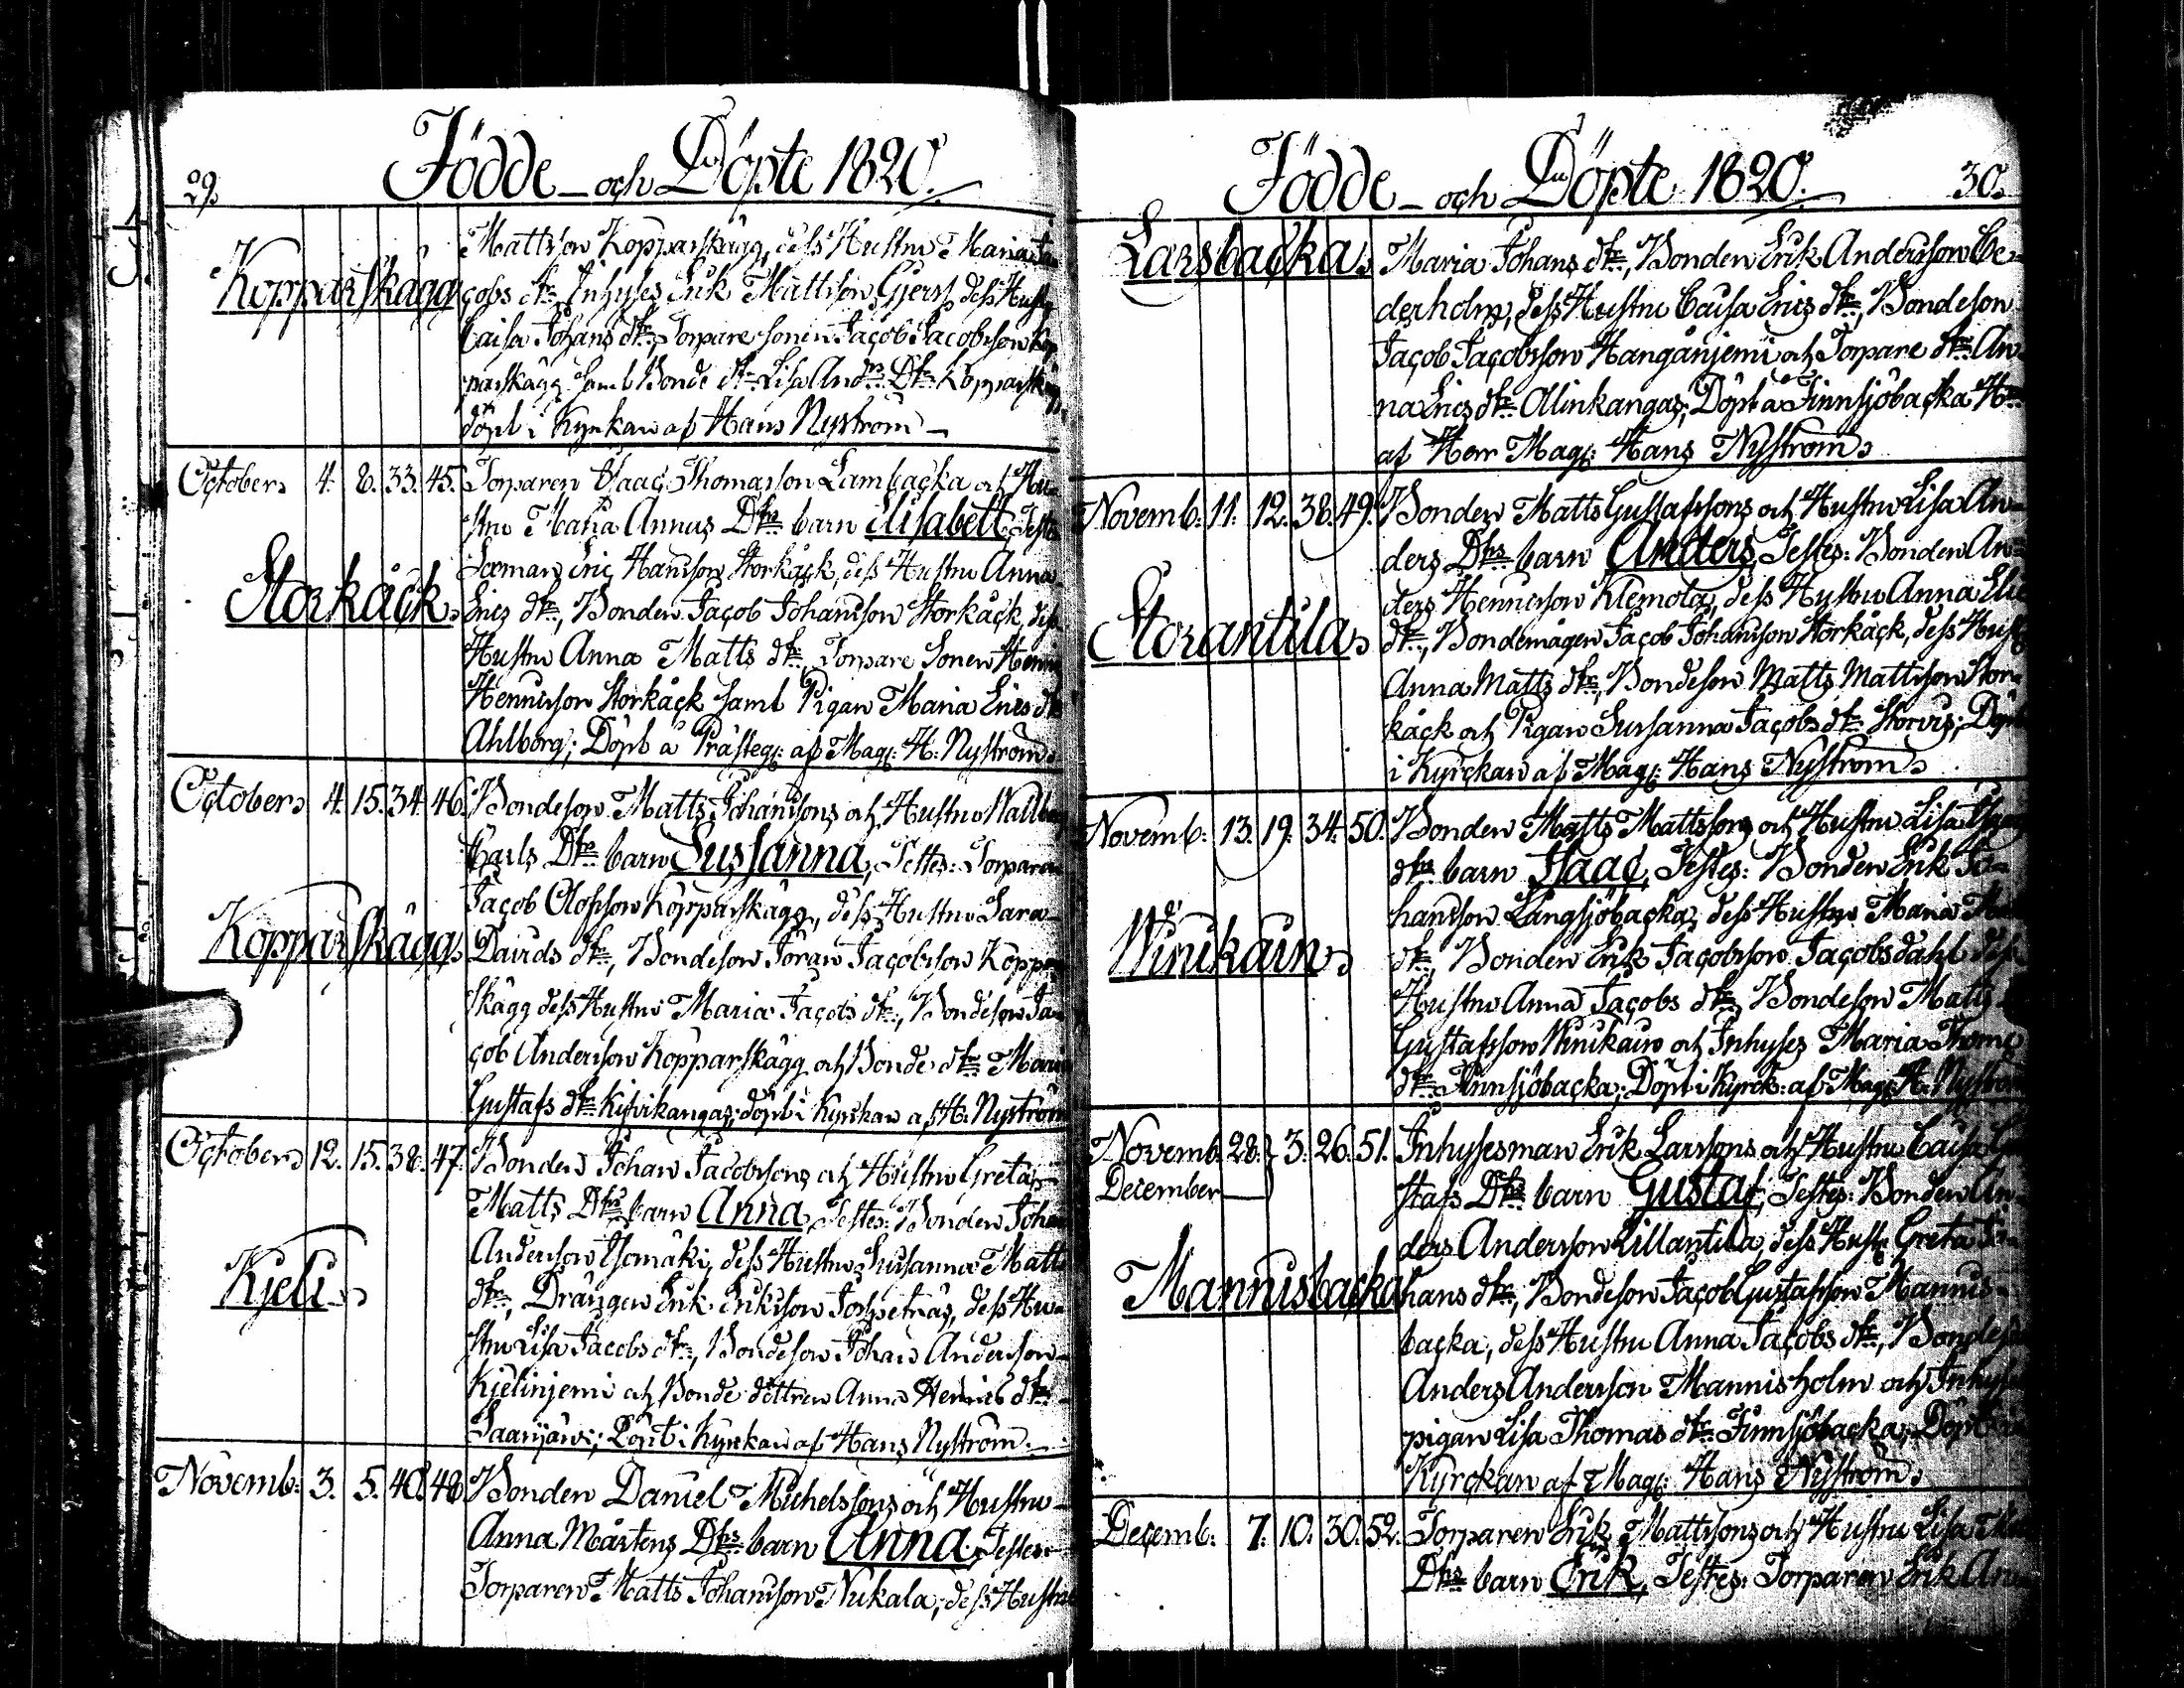 29.
Födde - och Döpte 1820.
Kopparskägg
Mattsson Kopparskägg, dess Hustru Maria Ja-
cobs dtr, Inhyses Erik Mattsson Gjers, dess Hustru
Caisa Johans dtr, Torpare sonen Jacob Jacobsson Kop-
parskägg samt Bonde dtr Lisa Andrs Dtr Kopparskägg
döpt i Kyrkan af Hans Nyström -
October 4. 8. 33. 45. Torparen Isaac Thomasson Lambacka och Hu-
stru Maria Annus Dtrs barn Elisabett, Testes
Sexman Eric Hansson Storkäck, dess Hustru Anna
Storkäck.
Erics dtr, Bonden Jacob Johansson Storkäck, dess
Hustru Anna Matts dtr, Torpare Sonen Henric
Henricsson Storkäck samt Pigan Maria Erics dtr
Ahlborg; Döpt å Prästeg: af Mag: H: Nyström.
October 4. 15. 34. 46. Bondeson Matts Johanssons och Hustru Wallborg
Karls Dtrs barn Susanna, Testes: Torparen
Jacob Olofsson Kopparskägg, dess Hustru Sara
Kopparskägg
Davids dtr, Bondeson Jöran Jacobsson Koppar
skägg dess Hustru Maria Jacobs dtr, Bondeson Ja-
cob Andersson Kopparskägg och Bonde dtr Maria
Gustafs dtr Kifvikangas; döpt i Kyrckan af H: Nyström
October 12. 15. 38. 47. Bonden Johan Jacobssons och Hustru Greta
Matts Dtrs barn Anna, Testes: Bonden Johan
Andersson Isomäki, dess Hustru Susanna Matts
Kjeli
dtr, Drängen Erik Eriksson, dess Hu-
stru Lisa Jacobs dtr, Bondeson Johan Andersson
Kjelinjemi och Bonde dottren Anna Henrics dtr
Saarijärvi; Döpt i Kyrckan af Hans Nyström.
Novemb: 3. 5. 40. 48. Bonden Daniel Michelssons och Hustru
Anna Mårtens Dtrs barn Anna, Testes:
Torparen Matts Johansson Nukala, dess Hustru
Födde - och Döpte 1820. 30.
Larsbacka
Maria Johans dtr, Bonden Erik Andersson Ce-
derholm, dess Hustru Caisa Erics dtr, Bondeson
Jacob Jacobsson Hanganjemi och Torpare dtr An-
na Erics dtr Olinkangas; Döpt å Finnsjöbacka Hn
af Herr Mag: Hans Nyström
Novemb: 11. 12. 38. 49. Bonden Matts Gustafssons och Hustru Lisa An-
ders Dtrs barn Anders, Testes: Bonden An-
ders Henricsson Klemola, dess Hustru Anna Elic
Storantila
dtr, Bondemågen Jacob Johansson Storkäck, dess Hustru
Anna Matts dtr, Bondeson Matts Mattsson Stor-
käck och Pigan Susanna Jacobs dtr Storvis; Döpt
i Kyrckan af Mag: Hans Nyström
Novemb: 13. 19. 34. 50. Bonden Matts Mattssons och Hustru Lisa
dtrs barn Isaac, Testes: Bonden Erik Jo-
hansson Långsjöbacka, dess Hustru Maria
Winikain
dtr, Bonden Erik Jacobsson Jacobsdahl dess
Hustru Anna Jacobs dtr, Bondeson Matts
Gustafsson Winikain och Inhyses Maria Thoms
dtr Finnsjöbacka; Döpt i Kyrck: af Mag: H: Nyström
Novemb. 28. } 3. 26. 51. Inhysesman Erik Larssons och Hustru Caisa Gu-
December
stafs Dtrs barn Gustaf; Testes: Bonden An-
ders Andersson Lillantila, dess Hustr Greta Jo-
Mannisbacka
hans dtr, Bondeson Jacob Gustafsson Mannis-
backa, dess Hustru Anna Jacobs dtr, Bondeson
Anders Andersson Mannisholm och Inhyses
pigan Lisa Thomas dtr Finnsjöbacka; Döpt i
Kyrckan af Mag: Hans Nyström
Decemb: 7. 10. 30. 52. Torparen Erik Mattssons och Hustru Lisa
Dtrs barn Erik, Testes: Torparen Erik An